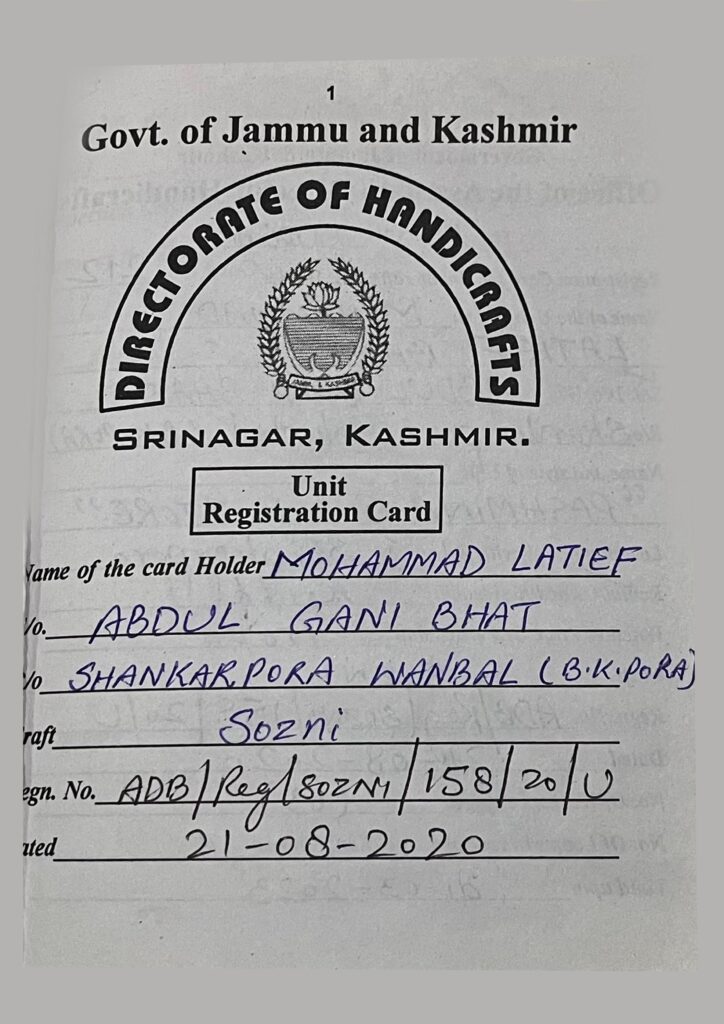 1
Govt. of Jammu and Kashmir
DIRECTORATE OF HANDICRAFTS
JAMMU & KASHMIR
SRINAGAR, KASHMIR.
Unit
Registration Card
Name of the card Holder MOHAMMAD LATIEF
/o. ABDUL GANI BHAT
/o SHANKARPORA WANBAL (B.K.PORA)
raft Sozni
egn. No. ADB/Reg/SOZNI/158/20/U
ated 21-08-2020